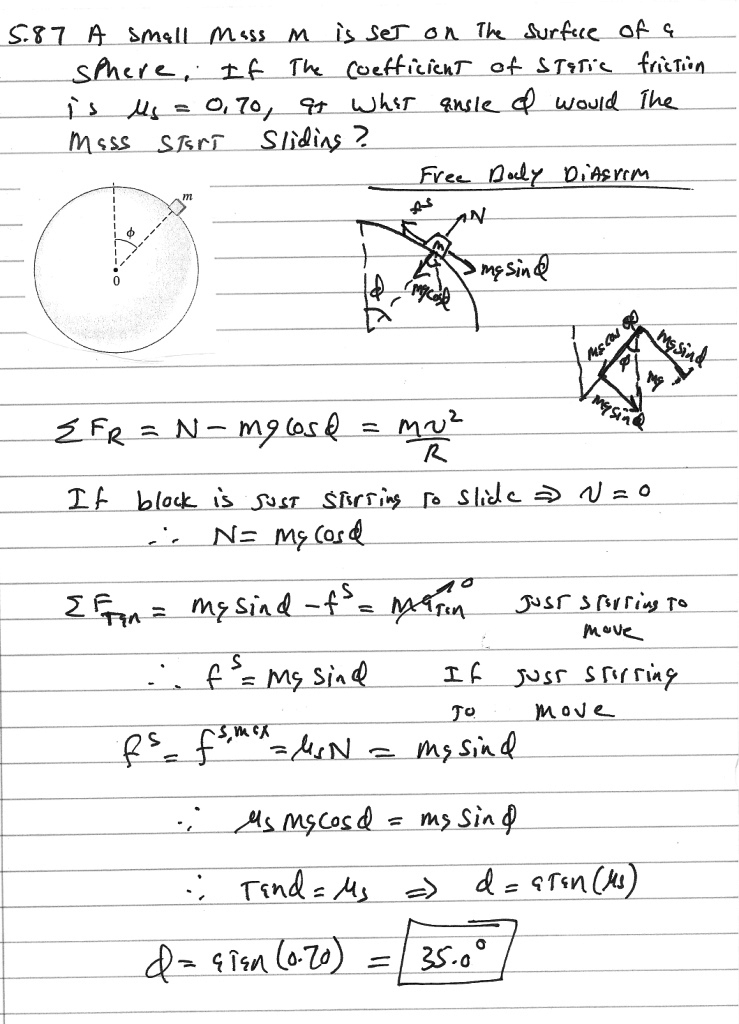 5.87 A small mass m is set on the surface of a
sphere, If the coefficient of static friction
is μs = 0.70, at what angle ϕ would the
mass start sliding?
Free Body Diagram
m
ϕ
0
fs
N
m
mg sinϕ
mg cosϕ
ϕ
mg cos ϕ
mg sinϕ
ϕ
mg
mg sinϕ
ΣF_R = N - mg cosϕ = mv²/R
If block is just starting to slide ⇒ v = 0
∴ N = mg cosϕ
ΣF_Tan = mg sinϕ - f^s = ma_Tan 0 just starting to
move
∴ f^s = mg sinϕ If just starting
to move
f^s = f^s,max = μsN = mg sinϕ
∴ μs mg cosϕ = mg sinϕ
∴ Tanϕ = μs ⇒ ϕ = aTan(μs)
ϕ = aTan(0.70) = 35.0°